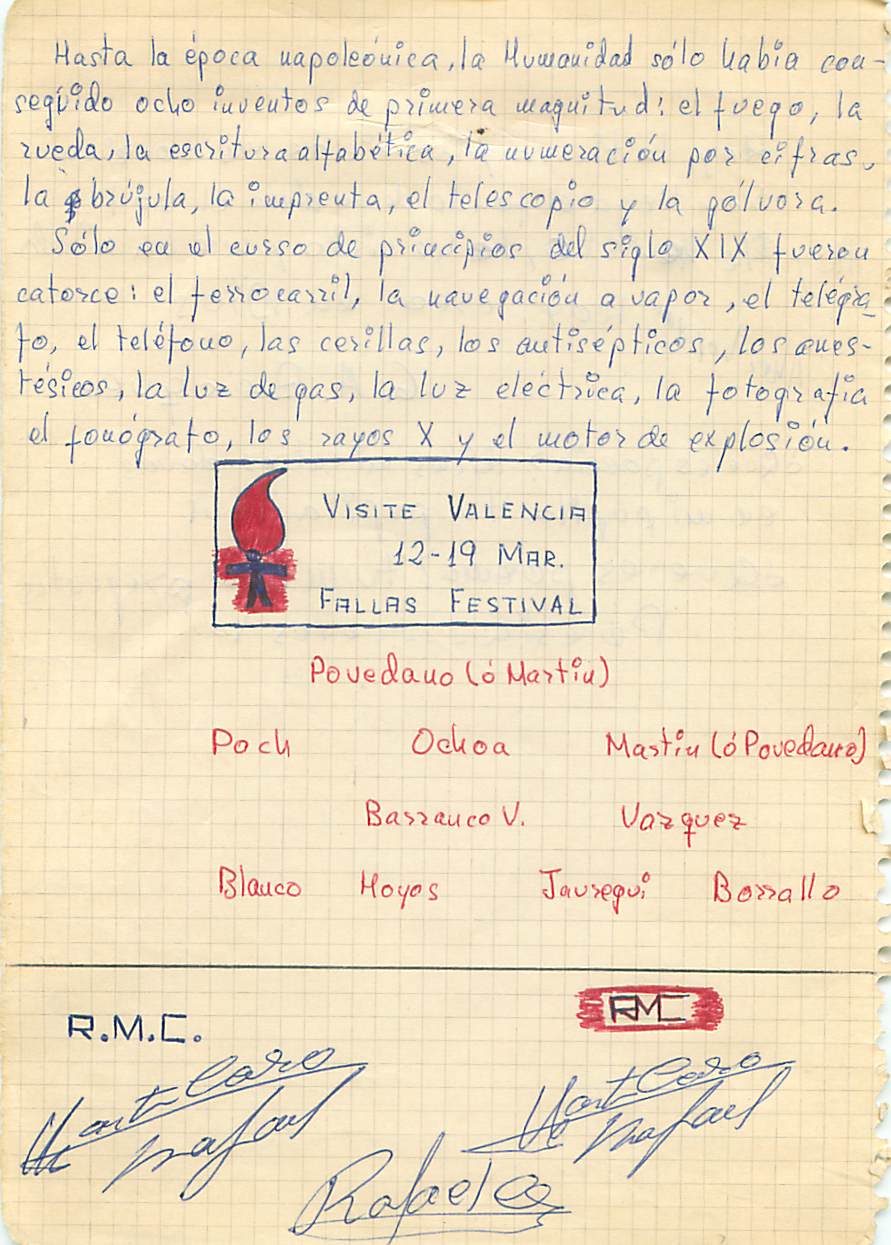 Hasta la época napoleónica, la Humanidad sólo había con-
seguido ocho inventos de primera magnitud: el fuego, la
rueda, la escritura alfabética, la numeración por cifras,
la brújula, la imprenta, el telescopio y la pólvora.
Sólo en el curso de principios del siglo XIX fueron
catorce: el ferrocarril, la navegación a vapor, el telégra-
fo, el teléfono, las cerillas, los antisépticos, los anes-
tésicos, la luz de gas, la luz eléctrica, la fotografía
el fonógrafo, los rayos X y el motor de explosión.
VISITE VALENCIA
12-19 MAR.
FALLAS FESTIVAL
Povedano (ó Martin)
Poch Ochoa Martin (ó Povedano)
Barranco V. Vazquez
Blanco Hoyos Jauregui Borrallo
R.M.C. RMC
Caro Caro
Rafael Rafael
Rafael